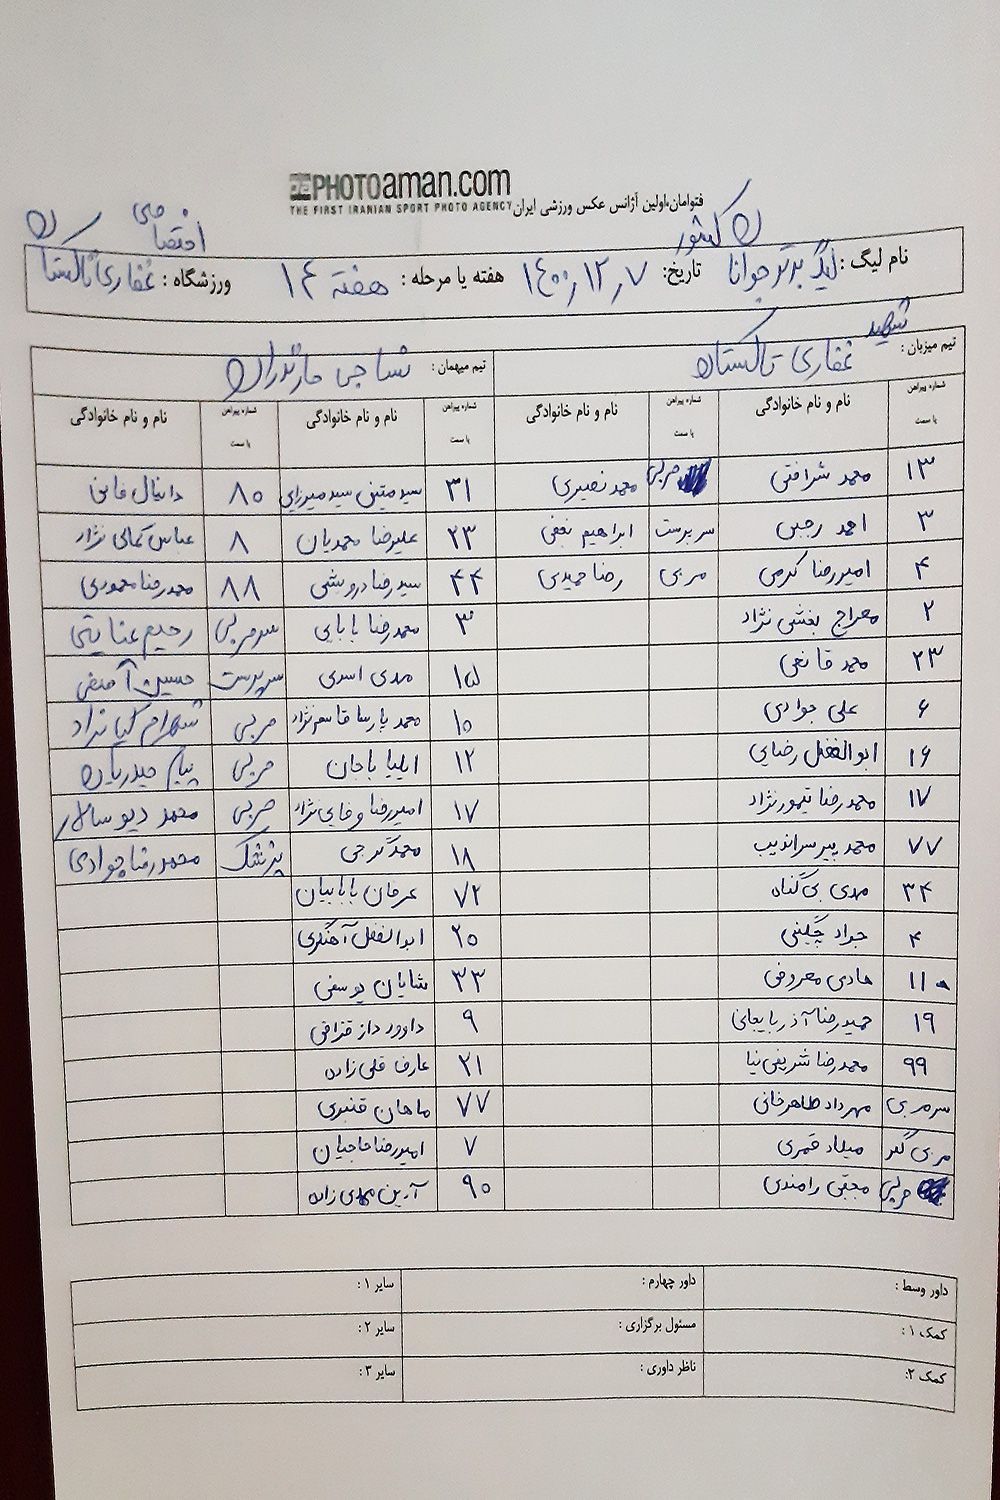 PHOTOaman.com
THE FIRST IRANIAN SPORT PHOTO AGENCY
فتوامان،اولین آژانس عکس ورزشی ایران
نام لیگ : لیگ برتر جوانان کشور تاریخ: ۱۴۰۰/۱۲/۷ هفته یا مرحله : هفته ۱۴ ورزشگاه : اختصاصی غفاری تاکستان
تیم میزبان : شهید غفاری تاکستان تیم میهمان : نساجی مازندران
شماره پیراهن یا سمت نام و نام خانوادگی شماره پیراهن یا سمت نام و نام خانوادگی شماره پیراهن یا سمت نام و نام خانوادگی شماره پیراهن یا سمت نام و نام خانوادگی
۱۳ محمد شرافتی مربی محمد نصیری ۳۱ سید متین سید میرزایی ۸۰ دانیال
۳ احمد رجبی سرپرست ابراهیم نجفی ۲۳ علیرضا محمدیان ۸ عباس کمالی نژاد
۴ امیررضا کرمی مربی رضا حمیدی ۴۴ سید رضا درویشی ۸۸ محمدرضا محمودی
۲ معراج بخشی نژاد ۳ محمدرضا بابایی سرمربی رحیم عنایتی
۲۳ محمد قانعی ۱۵ مهدی اسدی سرپرست حسین
۶ علی جوادی ۱۰ محمد پارسا قاسم نژاد مربی شهرام کیا نژاد
۱۶ ابوالفضل رضایی ۱۲ ایلیا باجان مربی پیام حیدریان
۱۷ محمدرضا تیمورنژاد ۱۷ امیررضا وفایی نژاد مربی محمد دیو سالار
۷۷ محمد پیرسراندیب ۱۸ محمد پزشک محمدرضا جوادی
۳۴ مهدی بی گناه ۷۲ عرفان بابابیان
۴ جواد چگینی ۲۰ ابوالفضل آهنگری
۱۱ هادی معروفی ۳۳ شایان یوسفی
۱۹ حمیدرضا آذربایجانی ۹ داور دازقزاقی
۹۹ محمدرضا شریفی نیا ۲۱ عارف قلی زاده
سرمربی مهرداد طاهرخانی ۷۷ ماهان قنبری
مربی گلر میلاد قمری ۷ امیررضا حاجیان
مربی مجتبی رامندی ۹۰ آرین مهدی زاده
داور وسط : داور چهارم : سایر ۱ :
کمک ۱ : مسئول برگزاری : سایر ۲ :
کمک ۲: ناظر داوری : سایر ۳ :